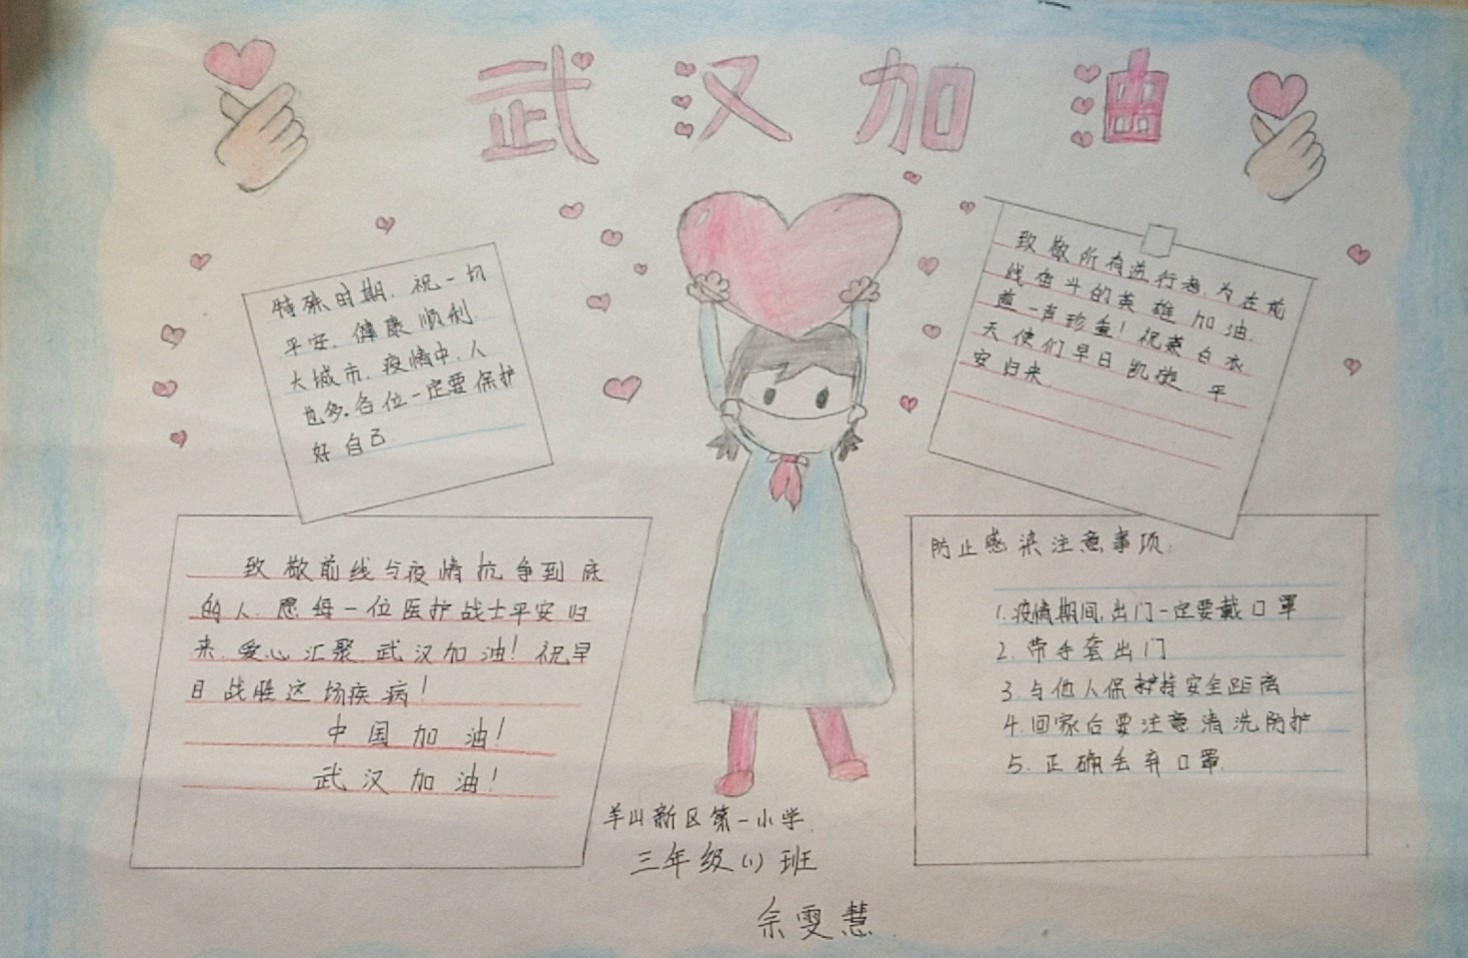 武汉加油
特殊时期，祝一切
平安、健康顺利
大城市，疫情中，人
也多，各位一定要保护
好自己
致敬所有逆行者，为在前
线奋斗的英雄加油，
道一声珍重！祝愿白衣
天使们早日凯旋，平
安归来
致敬前线与疫情抗争到底
的人，愿每一位医护战士平安归
来，爱心汇聚，武汉加油！祝早
日战胜这场疾病！
中国加油！
武汉加油！
防止感染注意事项：
1.疫情期间，出门一定要戴口罩
2.带手套出门
3.与他人保护持安全距离
4.回家后要注意清洗防护
5.正确丢弃口罩
羊山新区第一小学
三年级（1）班
余雯慧